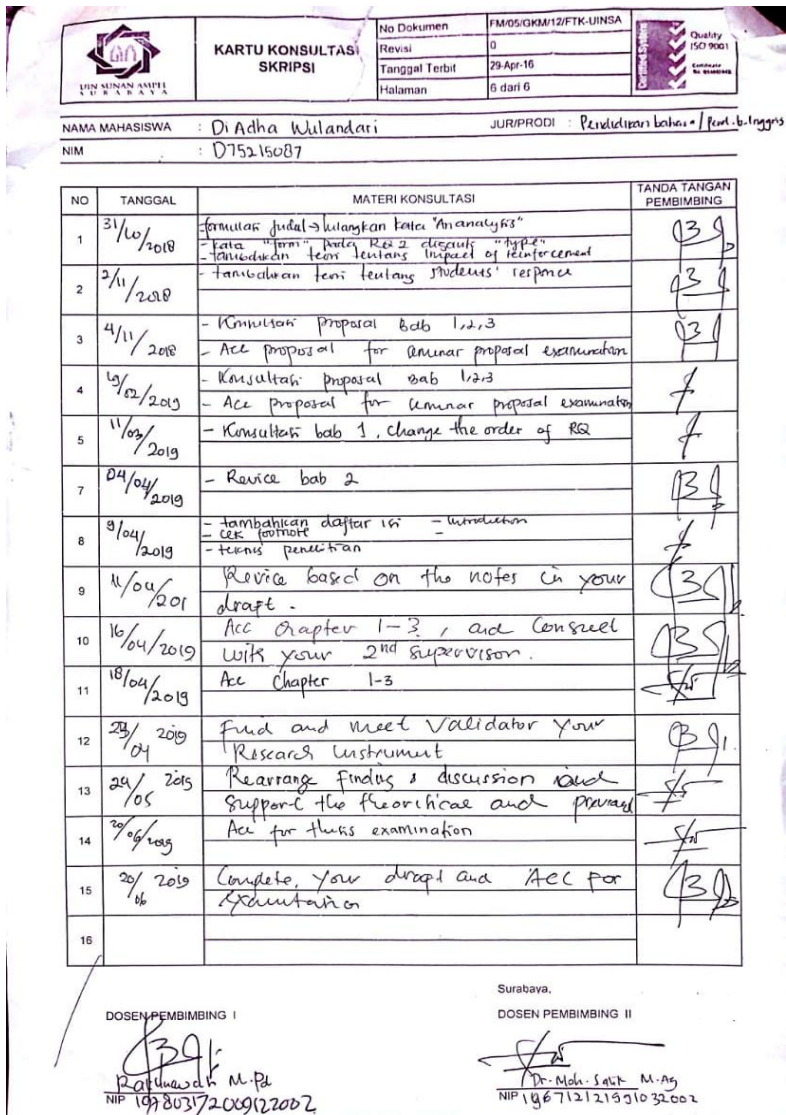 UIN SUNAN AMPEL
SURABAYA
KARTU KONSULTASI
SKRIPSI
No Dokumen FM/05/GKM/12/FTK-UINSA
Revisi 0
Tanggal Terbit 29-Apr-16
Halaman 6 dari 6
Quality
ISO 9001
NAMA MAHASISWA : Di Adha Wulandari JUR/PRODI : Pendidikan bahasa / Pend. b. Inggris
NIM : D75215087
NO TANGGAL MATERI KONSULTASI TANDA TANGAN PEMBIMBING
1 31/10/2018 - formulasi judul → hilangkan kata "An analysis"
- kata "form" pada RQ 2 diganti "type"
- tambahkan teori tentang impact of reinforcement
2 2/11/2018 - tambahkan teori tentang students' responce
3 4/11/2018 - Konsultasi proposal Bab 1,2,3
- Acc proposal for seminar proposal examination
4 19/02/2019 - Konsultasi proposal Bab 1,2,3
- Acc proposal for seminar proposal examination
5 11/03/2019 - Konsultasi bab 1, change the order of RQ
7 04/04/2019 - Revice bab 2
8 9/04/2019 - tambahkan daftar isi - Introduction
- cek footnote -
- teknis penelitian
9 11/04/201 Revice based on the notes in your
draft.
10 16/04/2019 Acc Chapter 1-3, and Consuel
with your 2nd supervisor.
11 18/04/2019 Acc Chapter 1-3
12 23/04 2019 Find and meet Validator your
Research Instrument
13 24/05 2019 Rearrange Finding & discussion and
Support the theoritical and
14 20/06/2019 Acc for thesis examination
15 20/06 2019 Complete your draft and Acc for
Examination
16
Surabaya,
DOSEN PEMBIMBING I DOSEN PEMBIMBING II
M.Pd Dr. Moh. Salik M.Ag
NIP 197803172009122002 NIP 196712121991032002